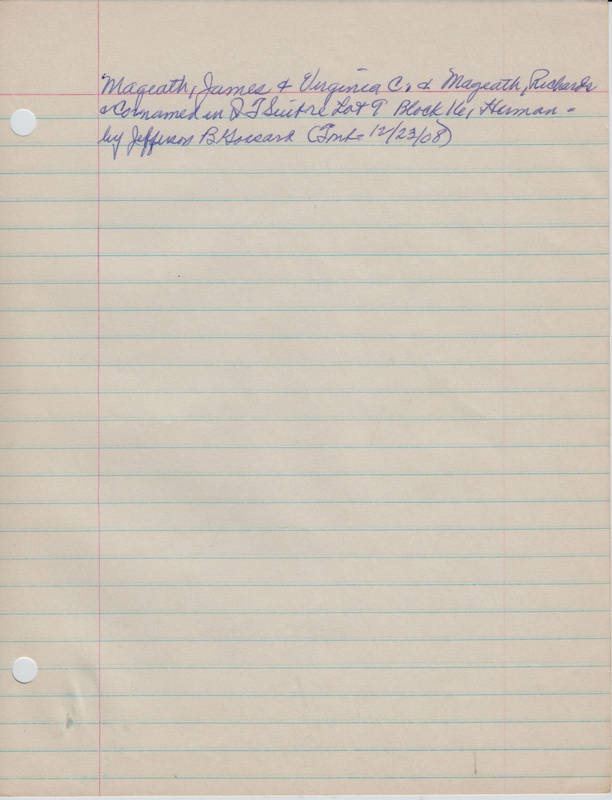 Mageath, James & Virginia C. & Mageath, Richards
& Co named in Q T Suit re Lot 9 Block 16, Herman -
by Jefferson B Gossard (Tmb- 12/23/08)